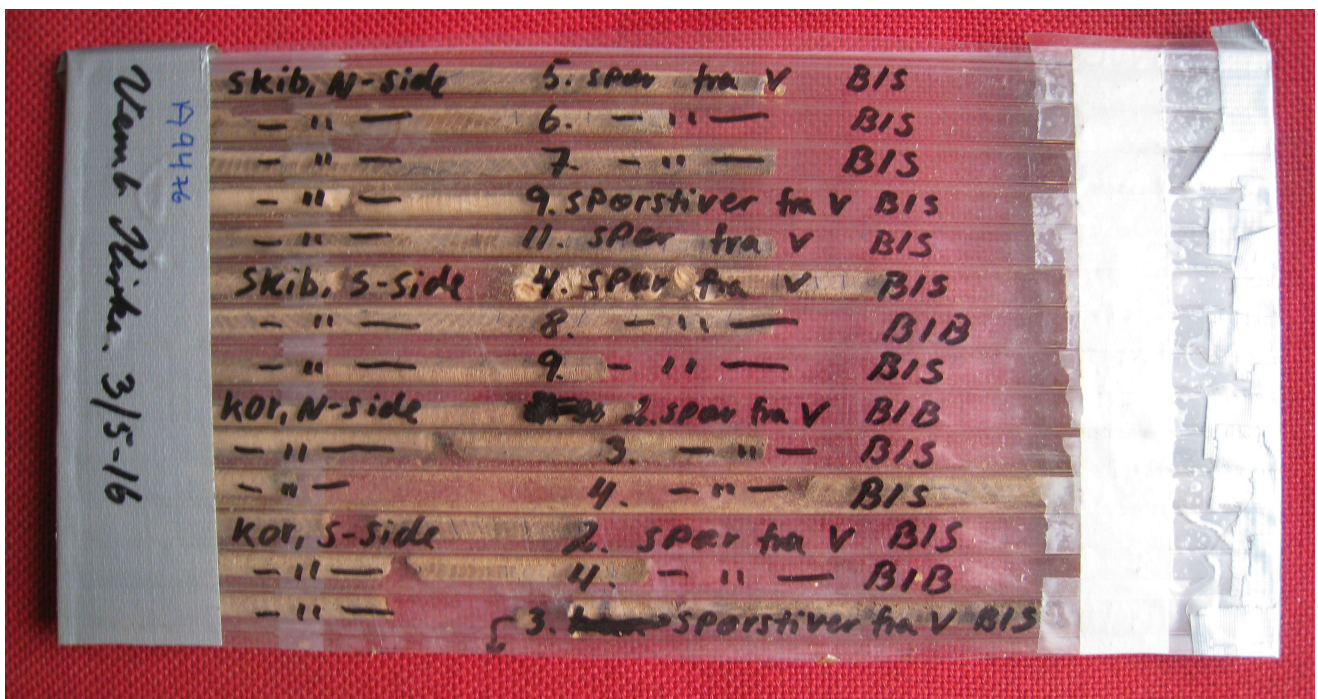 Vemb Kirke. 3/5-16
A9476
Skib, N-side 5. spær fra V BIS
- " - 6. - " - BIS
- " - 7. - " - BIS
- " - 9. spærstiver fra V BIS
- " - 11. spær fra V BIS
Skib, S-side 4. spær fra V BIS
- " - 8. - " - BIB
- " - 9. - " - BIS
Kor, N-side 2. spær fra V BIB
- " - 3. - " - BIS
- " - 4. - " - BIS
Kor, S-side 2. spær fra V BIS
- " - 4. - " - BIB
- " - 3. spærstiver fra V BIS